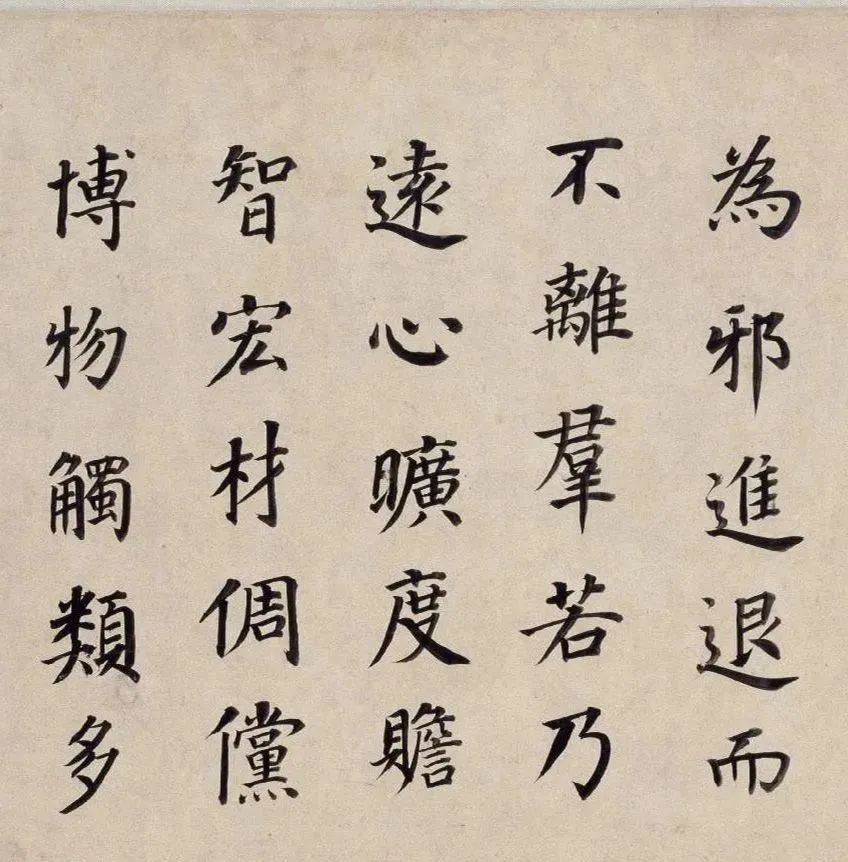 為邪進退而
不離羣若乃
遠心曠度贍
智宏材倜儻
博物觸類多